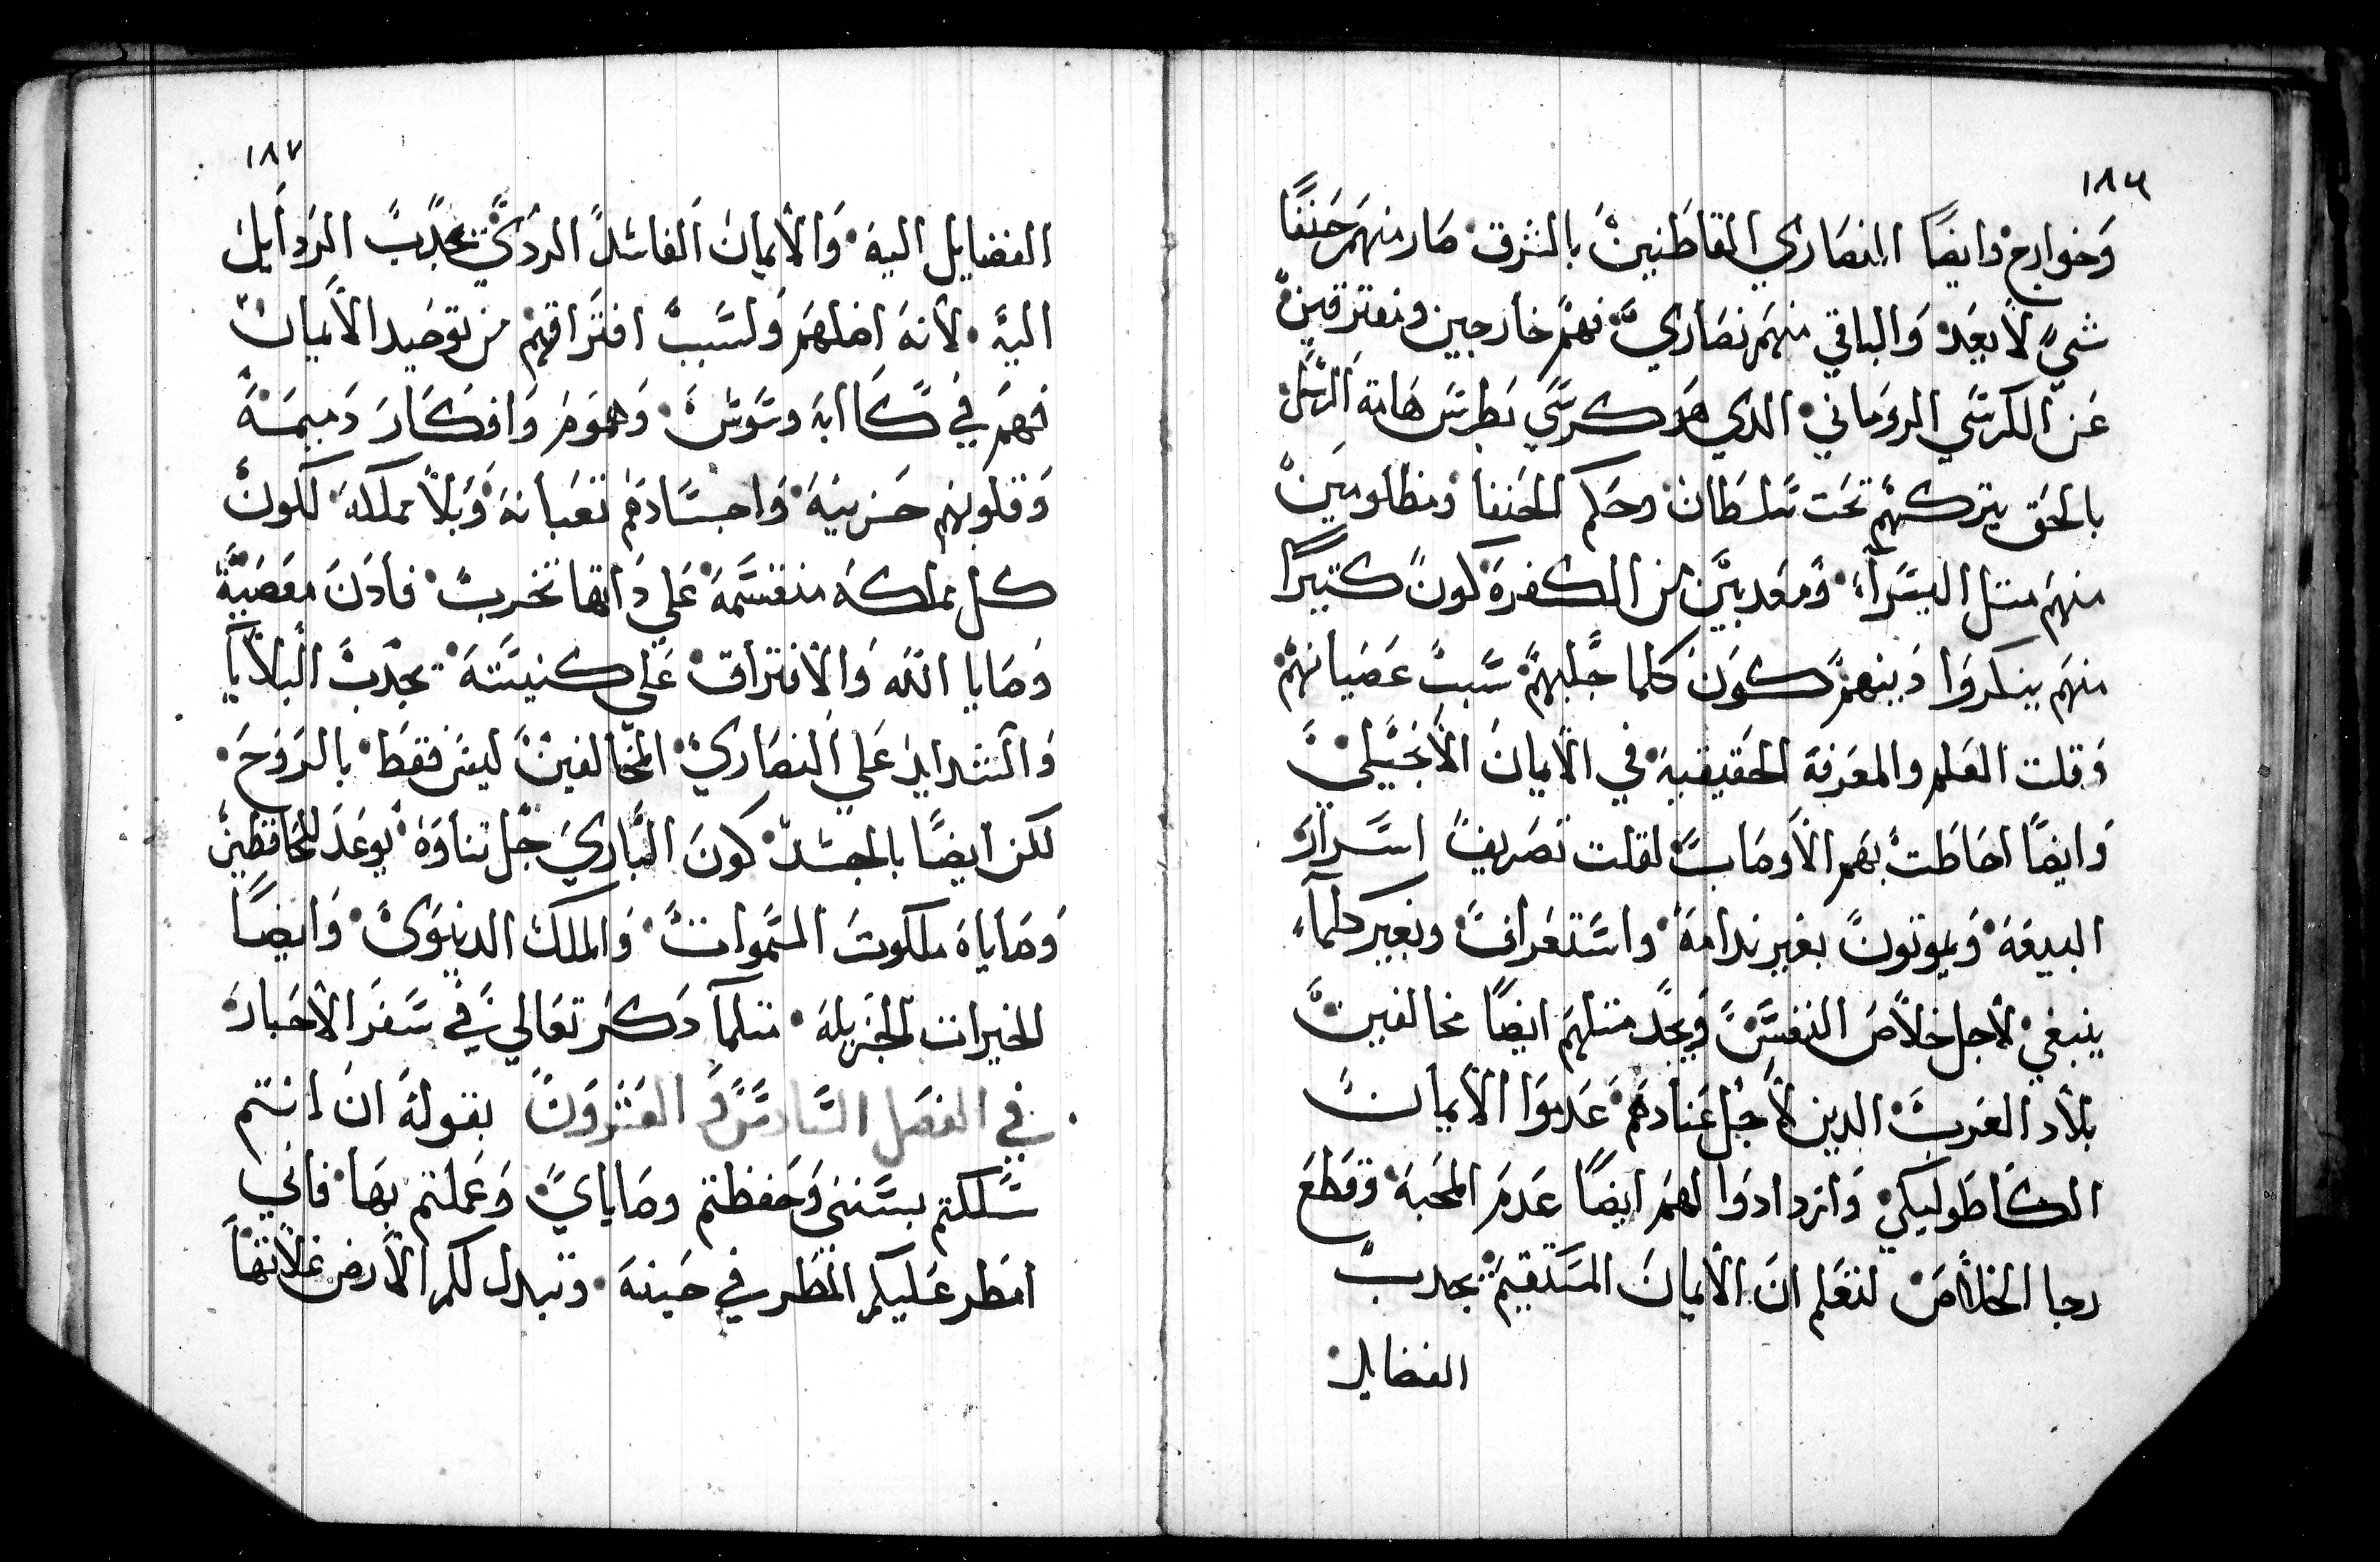 ١٨٦
وَخوارج وايضًا النصَاري القاطنين بالشرق صَار منهَم حَنفًا
شيءٍ لا يعَد وَالباقي منهَم نصَاري فهم خارجين ومفترقين
عَن الكرسَي الروَماني الدي هَو كرسَي بَطرسَ هَامة الرسَل
بالحَق يتركهم تحَت سَلطَان وحَكم الحَنفا ومظلومين
منهَم متل اليسَرآء ومعَدبين من الكفرة كون كتيرًا
منهَم ينكروَا دَينهم كوَن كلما جَلبهم سَبب عَصَيانهم
وَقلت العَلم والمعَرفة الحَقيقيَة في الايمان الانجَيلي
وَايضًا احَاطَت بهَم الاوصَاب لقلت تصَريف اسَرار
البيعَة وَيموتون بغير ندامة واسَتعَراف وبغير كلمآء
ينبغي لاجل خلاصَ النفسَ وَيجَد متلهَم ايضًا مخالفين
بلاد الغَرب الدين لاجَل عَنادهَم عَدموَا الايمان
الكاطَوليكي وَازدادوَا لهَم ايضًا عَدمَ المحَبة وَقطَعَ
رجا الخلاصَ لنعَلم انَ الايمانَ المسَتقيمَ يجدب
الفضايل
١٨٧
الفضايل اليهَ وَالايمانَ الفاسَد الردَي يجدَب الردَايل
اليهَ لانهَ اضلهَم وَلسَبب افتَراقهم من توحَيد الايمان
فهَم في كاابة وسَوسَ وَهموَم وَافكارَ دَميمَة
وَقلوبهم حَزينَة وَاجسَادهَم تعَبانة وَبلا مملكة لكون
كل مملكة منقسَمة عَلي دَاتها تخرب فادَنَ معَصَية
وَصَايا اللهَ وَالافتراق عَلي كنيسَتهَ تجَدب البلايَا
وَالشدايد عَلي النصَاري المخالفين ليسَ فقطَ بالروَحَ
لكن ايضًا بالجسَد كونَ البَاريَ جَل تناوَة يوعَد للحَافظين
وَصَاياهَ ملكوتَ السَموات وَالملكَ الدنيوَي وَايضًا
الخيرات الجَزيلة متلمآ دَكرَ تعَالي في سَفرَ الاحَبار
في الفصَل السَادسَ وَ العَشروَن بقولهَ انَ انتم
سَلكتم بسَننى وَحَفظتم وصَاياي وَعَملتم بهَا فاني
امَطر عَليكم المَطَر في حَينهَ وتبدل لكم الارض غلاتها